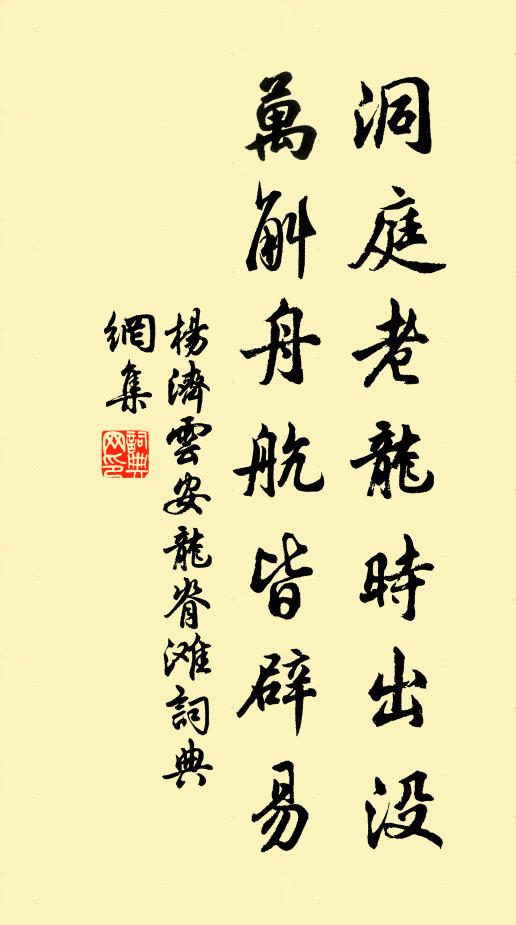 洞庭老龍時出没
萬斛舟航皆辟易
楊濟雲安龍脊滩詞典
網集
詞典网印